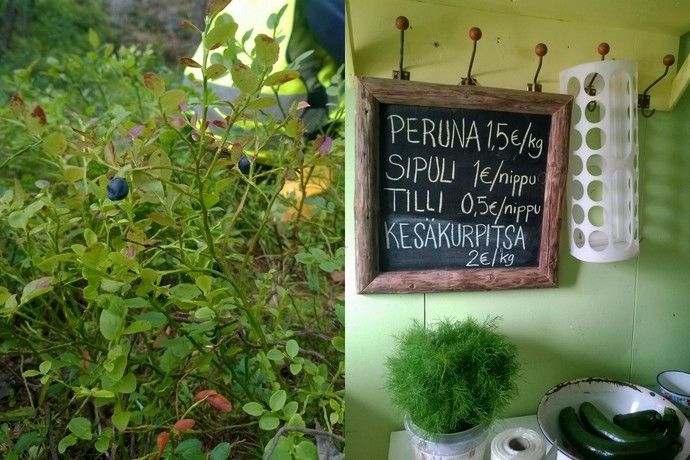 PERUNA 1,5€/kg
SIPULI 1€/nippu
TILLI 0,5€/nippu
KESÄKURPITSA
2€/kg